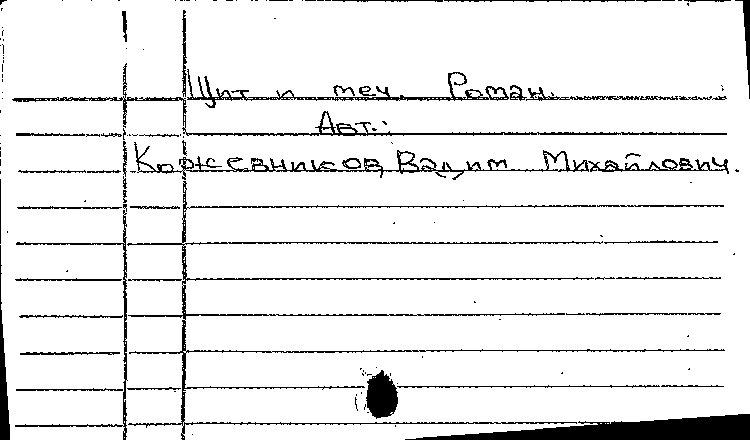 Щит и меч. Роман.
Авт.:
Кожевников, Вадим Михайлович.